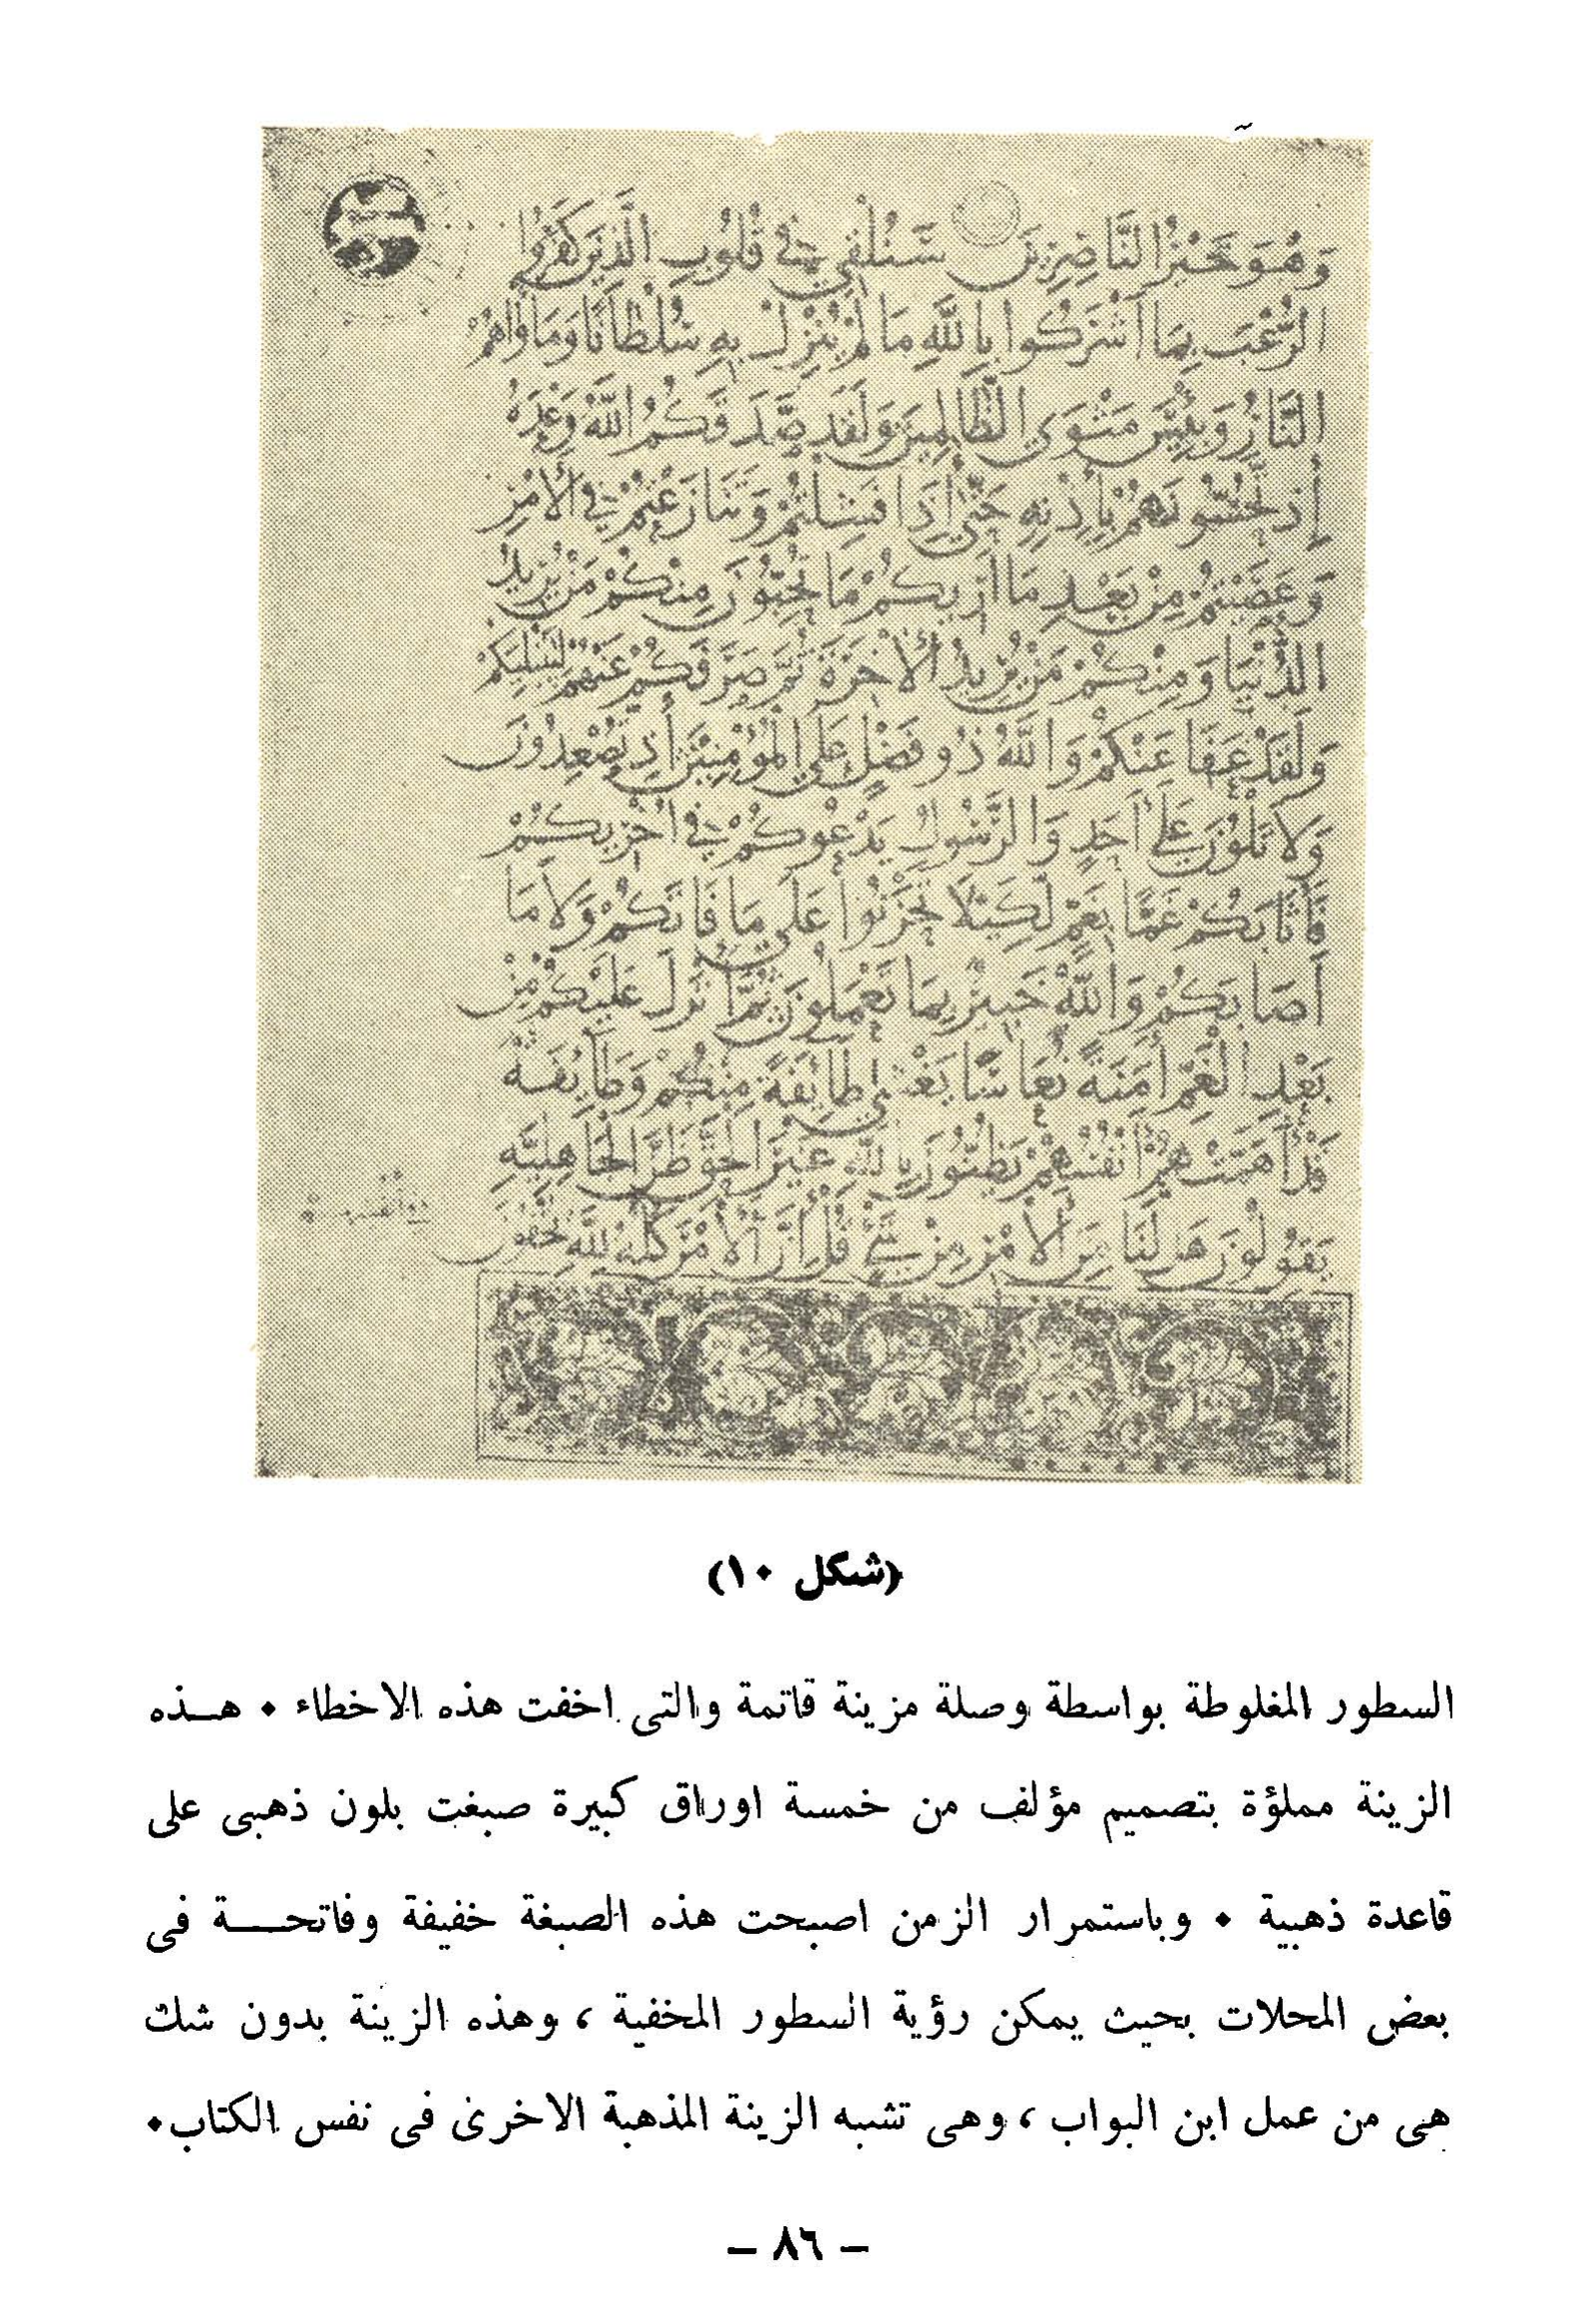 وَهُوَ خَيْرُ النَّاصِرِينَ سَنُلْقِي فِي قُلُوبِ الَّذِينَ كَفَرُوا
الرُّعْبَ بِمَا أَشْرَكُوا بِاللَّهِ مَا لَمْ يُنَزِّلْ بِهِ سُلْطَانًا وَمَأْوَاهُمُ
النَّارُ وَبِئْسَ مَثْوَى الظَّالِمِينَ وَلَقَدْ صَدَقَكُمُ اللَّهُ وَعْدَهُ
إِذْ تَحُسُّونَهُمْ بِإِذْنِهِ حَتَّى إِذَا فَشِلْتُمْ وَتَنَازَعْتُمْ فِي الْأَمْرِ
وَعَصَيْتُمْ مِنْ بَعْدِ مَا أَرَيكُمْ مَا تُحِبُّونَ مِنْكُمْ مَنْ يُرِيدُ
الدُّنْيَا وَمِنْكُمْ مَنْ يُرِيدُ الْأَخِرَةَ ثُمَّ صَرَفَكُمْ عَنْهُمْ لِيَبْتَلِيَكُمْ
وَلَقَدْ عَفَا عَنْكُمْ وَاللَّهُ ذُو فَضْلٍ عَلَى الْمُؤْمِنِينَ إِذْ تُصْعِدُونَ
وَلَا تَلْوُنَ عَلَى أَحَدٍ وَالرَّسُولُ يَدْعُوكُمْ فِي أُخْرَيكُمْ
فَأَثَابَكُمْ غَمًّا بِغَمٍّ لِكَيْلَا تَحْزَنُوا عَلَى مَا فَاتَكُمْ وَلَا مَا
أَصَابَكُمْ وَاللَّهُ خَبِيرٌ بِمَا تَعْمَلُونَ ثُمَّ أَنْزَلَ عَلَيْكُمْ مِنْ
بَعْدِ الْغَمِّ أَمَنَةً نُعَاسًا يَغْشَى طَايِفَةً مِنْكُمْ وَطَايِفَةٌ
قَدْ أَهَمَّتْهُمْ أَنْفُسُهُمْ يَظُنُّونَ بِاللَّهِ غَيْرَ الْحَقِّ ظَنَّ الْجَاهِلِيَّةِ
يَقُولُونَ هَلْ لَنَا مِنَ الْأَمْرِ مِنْ شَيْءٍ قُلْ إِنَّ الْأَمْرَ كُلَّهُ لِلَّهِ يُخْفُونَ
(شكل ١٠)
السطور المغلوطة بواسطة وصلة مزينة قاتمة والتى اخفت هذه الاخطاء ٠ هـــذه
الزينة مملؤة بتصميم مؤلف من خمسة اوراق كبيرة صبغت بلون ذهبى على
قاعدة ذهبية ٠ وباستمرار الزمن اصبحت هذه الصبغة خفيفة وفاتحـــة فى
بعض المحلات بحيث يمكن رؤية السطور المخفية ، وهذه الزينة بدون شك
هى من عمل ابن البواب ، وهى تشبه الزينة المذهبة الاخرى فى نفس الكتاب٠
– ٨٦ –